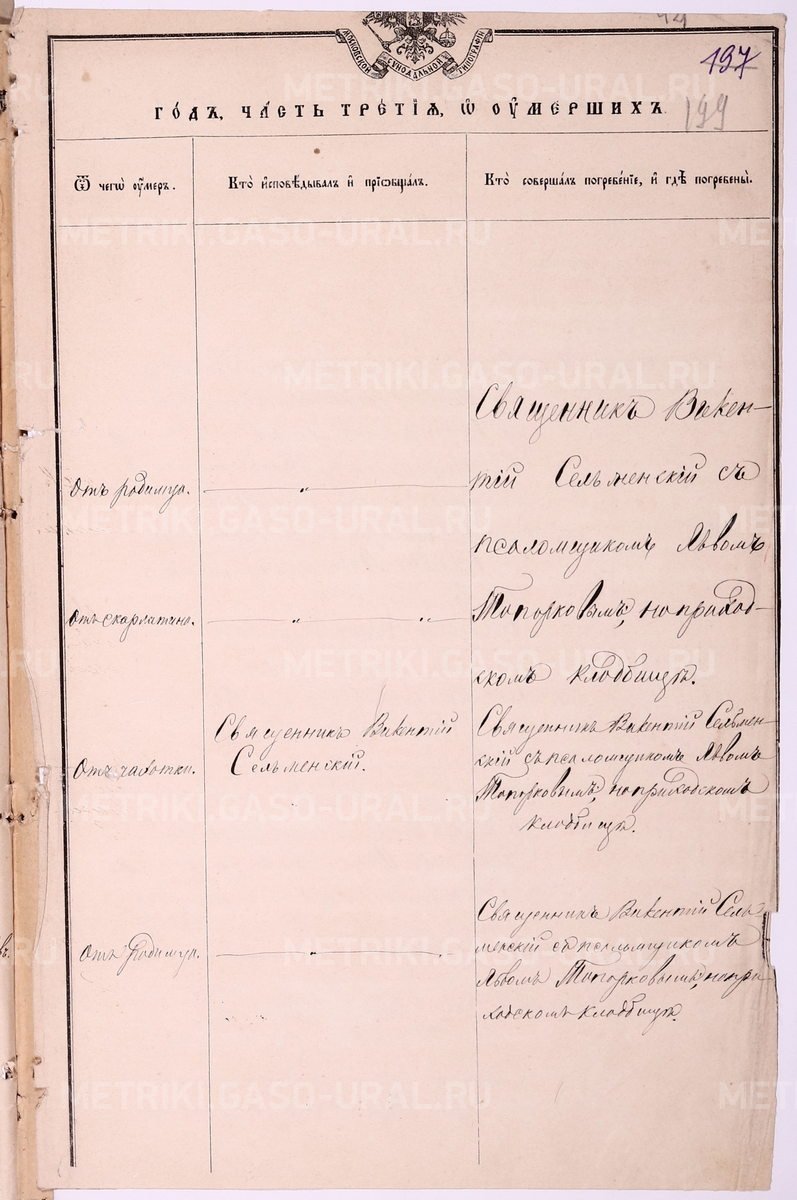 МОСКОВСКОЙ СѴНОДАЛЬНОЙ ТИПОГРАФІИ
197
199
ГО́ДЪ, ЧА́СТЬ ТРЕ́ТІѦ, Ѽ ОУ҆МЕРШИХЪ.
Ѿ чегѡ̀ оу҆́меръ.
Кто̀ и҆сповѣ́дывалъ и҆ прїѡбща́лъ.
Кто̀ соверша́лъ погребе́нїе, и҆ гдѣ̀ погребены̀.
Священникъ Викен-
Отъ родимца.
тій Сельменскій съ
псаломщикомъ Львомъ
Отъ скарлатины.
Топорковымъ, на приход-
скомъ кладбищѣ.
Отъ чахотки.
Священникъ Викентій
Сельменскій.
Священникъ Викентій Сельмен-
скій съ псаломщикомъ Львомъ
Топорковымъ, на приходскомъ
кладбищѣ.
Отъ родимца.
Священникъ Викентій Сель-
менскій съ псаломщикомъ
Львомъ Топорковымъ, на при-
ходскомъ кладбищѣ.
METRIKI.GASO-URAL.RU